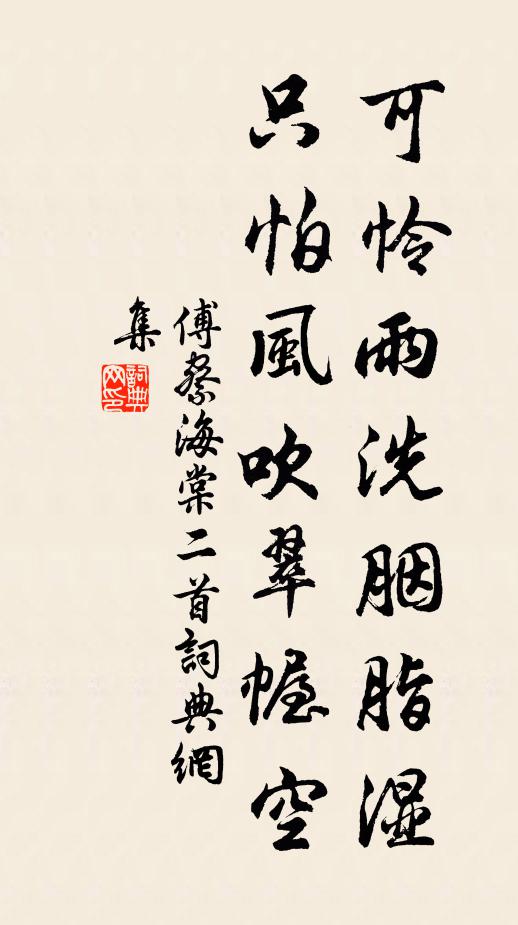 可怜雨洗胭脂湿
只怕風吹翠幄空
傅察海棠二首詞典網
集
詞典网印